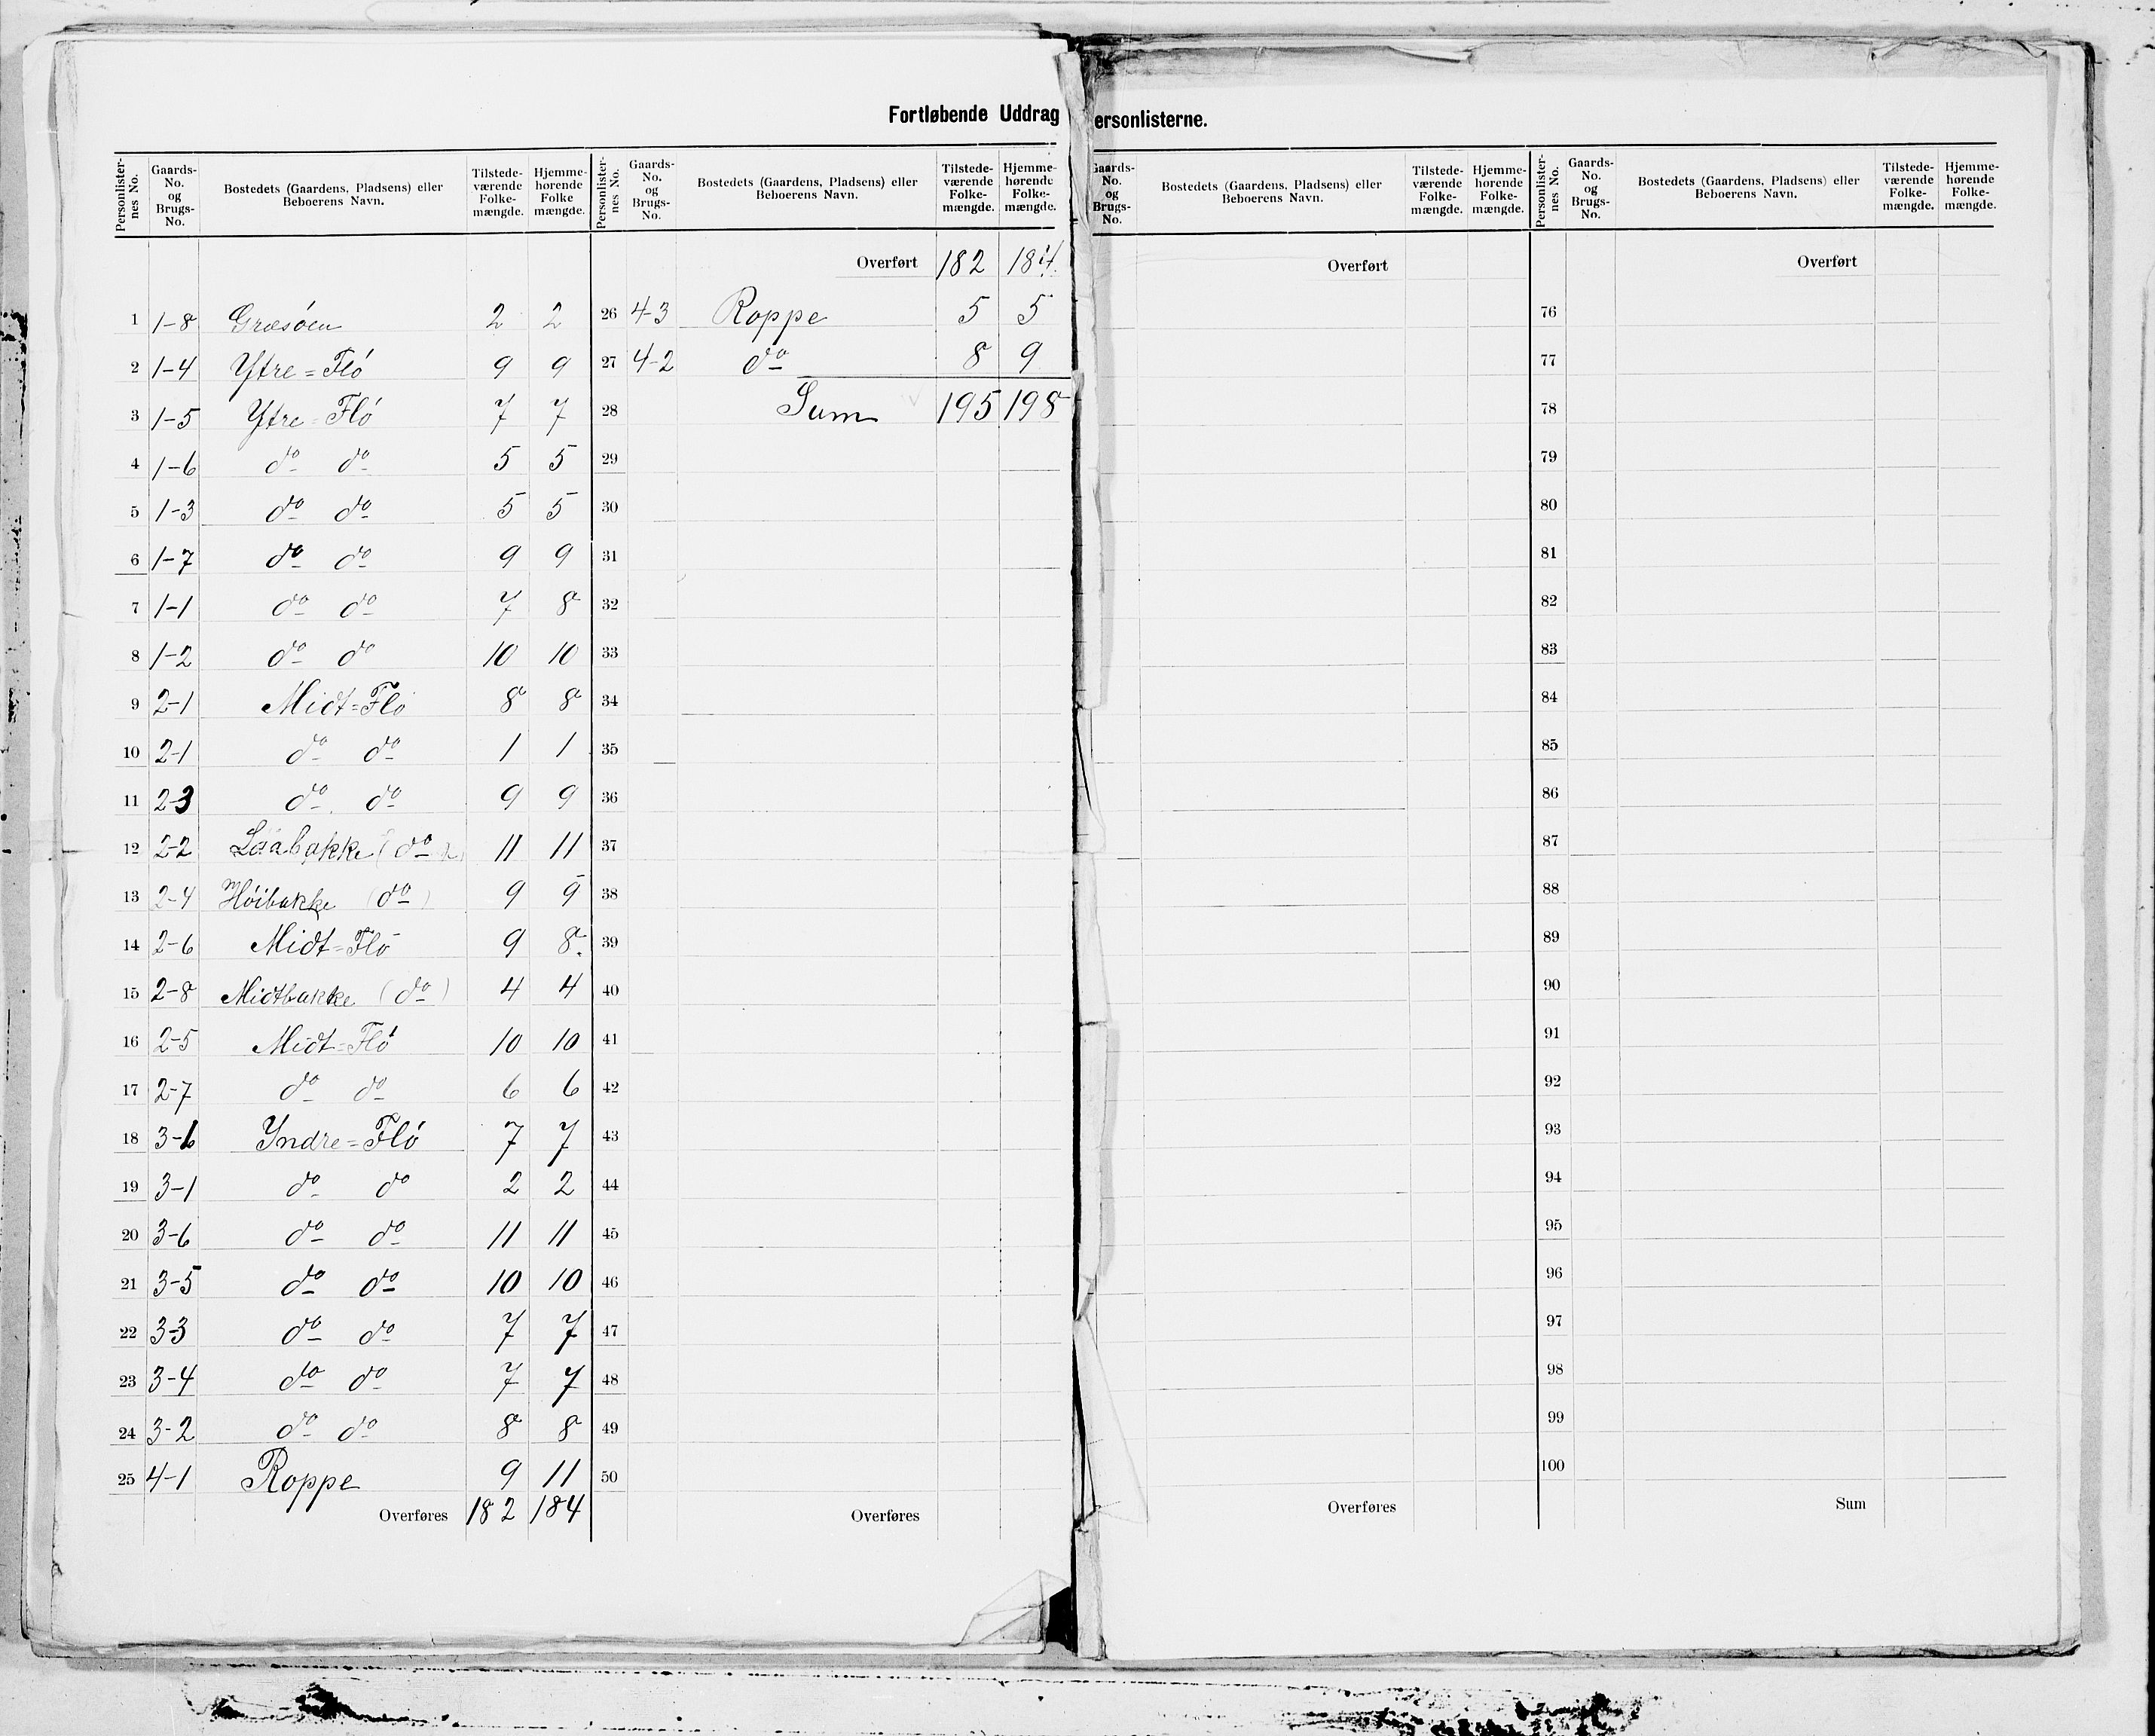 Fortløbende Uddrag
ersonlisterne.
Personlister-
nes No.
Gaards-
No.
og
Brugs-
No.
Bostedets (Gaardens, Pladsens) eller
Beboerens Navn.
Tilstede-
værende
Folke-
mængde.
Hjemme-
hørende
Folke
mængde.
1 1-8 Græsöen 2 2
2 1-4 Ytre=Fló 9 9
3 1-5 Ytre=Fló 7 7
4 1-6 do do 5 5
5 1-3 do do 5 5
6 1-7 do do 9 9
7 1-1 do do 7 8
8 1-2 do do 10 10
9 2-1 Midt=Fló 8 8
10 2-1 do do 1 1
11 2-3 do do 9 9
12 2-2 (do 11 11
13 2-4 Höibakke (do) 9 9
14 2-6 Midt=Fló 9 8.
15 2-8 Midtbakke (do) 4 4
16 2-5 Midt=Fló 10 10
17 2-7 do do 6 6
18 3-1 Yndre=Fló 7 7
19 3-1 do do 2 2
20 3-6 do do 11 11
21 3-5 do do 10 10
22 3-3 do do 7 7
23 3-4 do do 7 7
24 3-2 do do 8 8
25 4-1 Roppe 9 11
Overføres 182 184
Personlister-
nes No.
Gaards-
No.
og
Brugs-
No.
Bostedets (Gaardens, Pladsens) eller
Beboerens Navn.
Tilstede-
værende
Folke-
mængde.
Hjemme-
hørende
Folke-
mængde.
Overført 182 184.
26 4-3 Roppe 5 5
27 4-2 do 8 9
28 Sum 195 198
29
30
31
32
33
34
35
36
37
38
39
40
41
42
43
44
45
46
47
48
49
50
Overføres
Gaards-
No.
og
Brugs-
No.
Bostedets (Gaardens, Pladsens) eller
Beboerens Navn.
Tilstede-
værende
Folke-
mængde.
Hjemme-
hørende
Folke-
mængde.
Overført
Overføres
Personlister-
nes No.
Gaards-
No.
og
Brugs-
No.
Bostedets (Gaardens, Pladsens) eller
Beboerens Navn.
Tilstede-
værende
Folke-
mængde.
Hjemme-
hørende
Folke-
mængde.
Overført
76
77
78
79
80
81
82
83
84
85
86
87
88
89
90
91
92
93
94
95
96
97
98
99
100
Sum